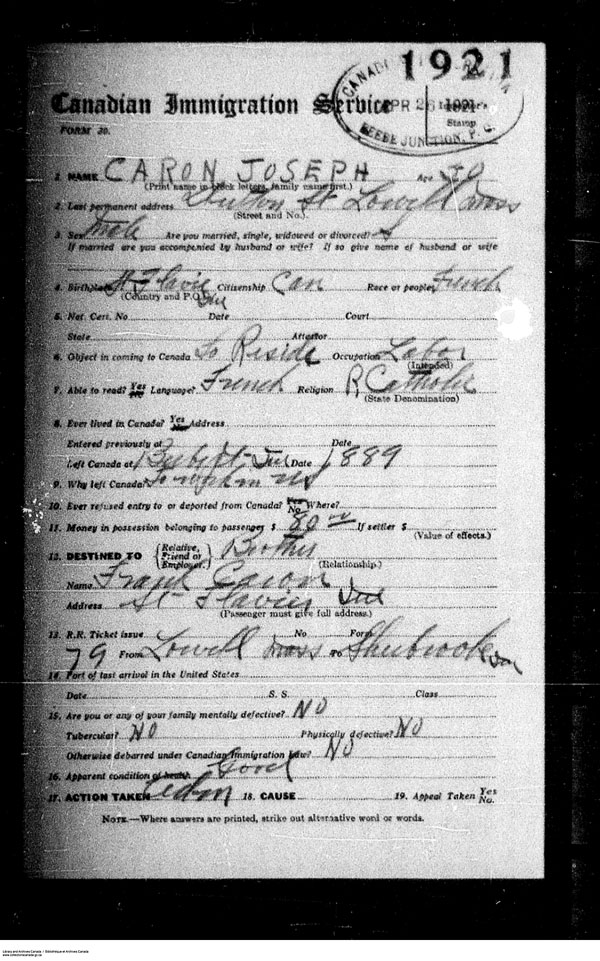 1921
CANADI
APR 26 1921
Inspector's
Stamp
BEEBE JUNCTION, P. Q.
Canadian Immigration Service
FORM 30.
1. NAME CARON JOSEPH Age
(Print name in block letters, family name first.)
2. Last permanent address Dutton St Lowell Mass
(Street and No.)
3. Sex Male Are you married, single, widowed or divorced? S
If married are you accompanied by husband or wife? If so give name of husband or wife
4. Birthplace St Flavie Citizenship Can Race or people French
(Country and P.O.)
5. Nat. Cert. No. Date Court
State Attestor
6. Object in coming to Canada To Reside Occupation Labor
(Intended)
7. Able to read? Yes No Language? French Religion R Catholic
(State Denomination)
8. Ever lived in Canada? Yes No Address
Entered previously at Date
Left Canada at Date 1889
9. Why left Canada? To
10. Ever refused entry to or deported from Canada? Yes No Where?
11. Money in possession belonging to passenger $ 80 00 If settler $
(Value of effects.)
12. DESTINED TO (Relative, Friend or Employer.) Brother
(Relationship.)
Name Frank Caron
Address St Flavie
(Passenger must give full address.)
13. R.R. Ticket issue No Form
79 From Lowell Mass To Sherbrooke
14. Port of last arrival in the United States
Date S. S. Class
15. Are you or any of your family mentally defective? NO
Tubercular? NO Physically defective? NO
Otherwise debarred under Canadian Immigration Law? NO
16. Apparent condition of health Good
17. ACTION TAKEN Adm 18. CAUSE 19. Appeal Taken Yes No.
NOTE.—Where answers are printed, strike out alternative word or words.
Library and Archives Canada / Bibliothèque et Archives Canada
www.collectionscanada.gc.ca